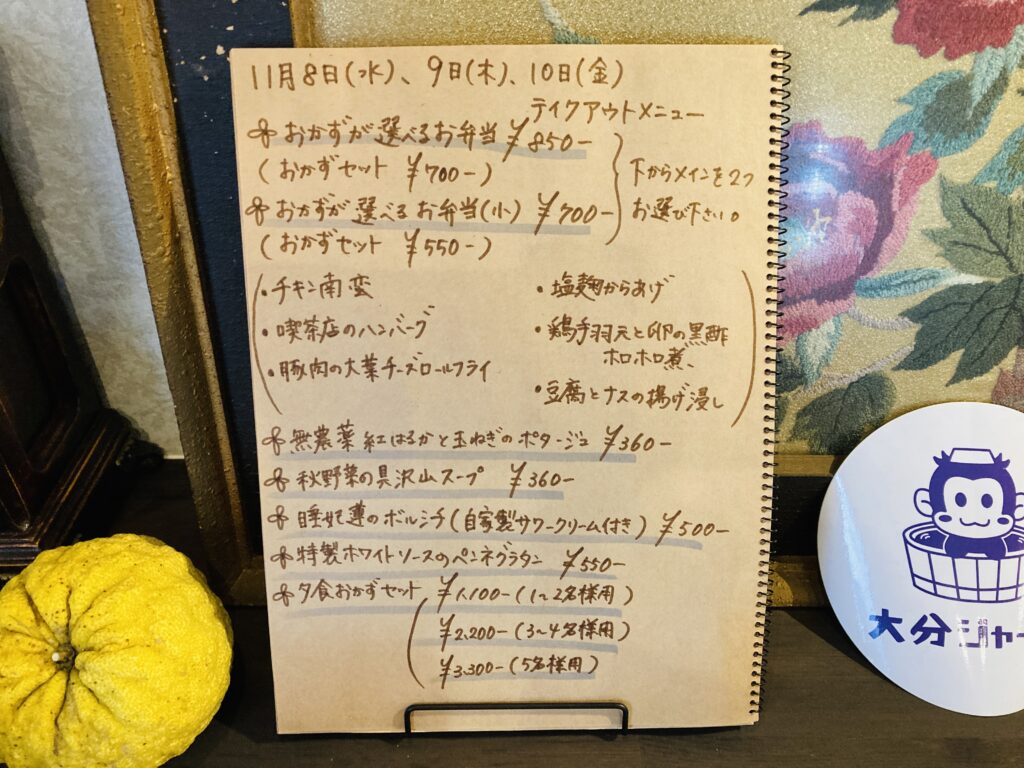 11月8日(水)、9日(木)、10日(金)
テイクアウトメニュー
おかずが選べるお弁当 ¥850-
(おかずセット ¥700-)
おかずが選べるお弁当(小) ¥700-
(おかずセット ¥550-)
下からメインを2つ
お選び下さい。
・チキン南蛮
・喫茶店のハンバーグ
・豚肉の大葉チーズロールフライ
・塩麹からあげ
・鶏手羽元と卵の黒酢
ホロホロ煮
・豆腐とナスの揚げ浸し
無農薬紅はるかと玉ねぎのポタージュ ¥360-
秋野菜の具沢山スープ ¥360-
のボルシチ(自家製サワークリーム付き) ¥500-
特製ホワイトソースのペンネグラタン ¥550-
夕食おかずセット ¥1,100-(1~2名様用)
¥2,200-(3~4名様用)
¥3,300-(5名様用)
大分ジャー